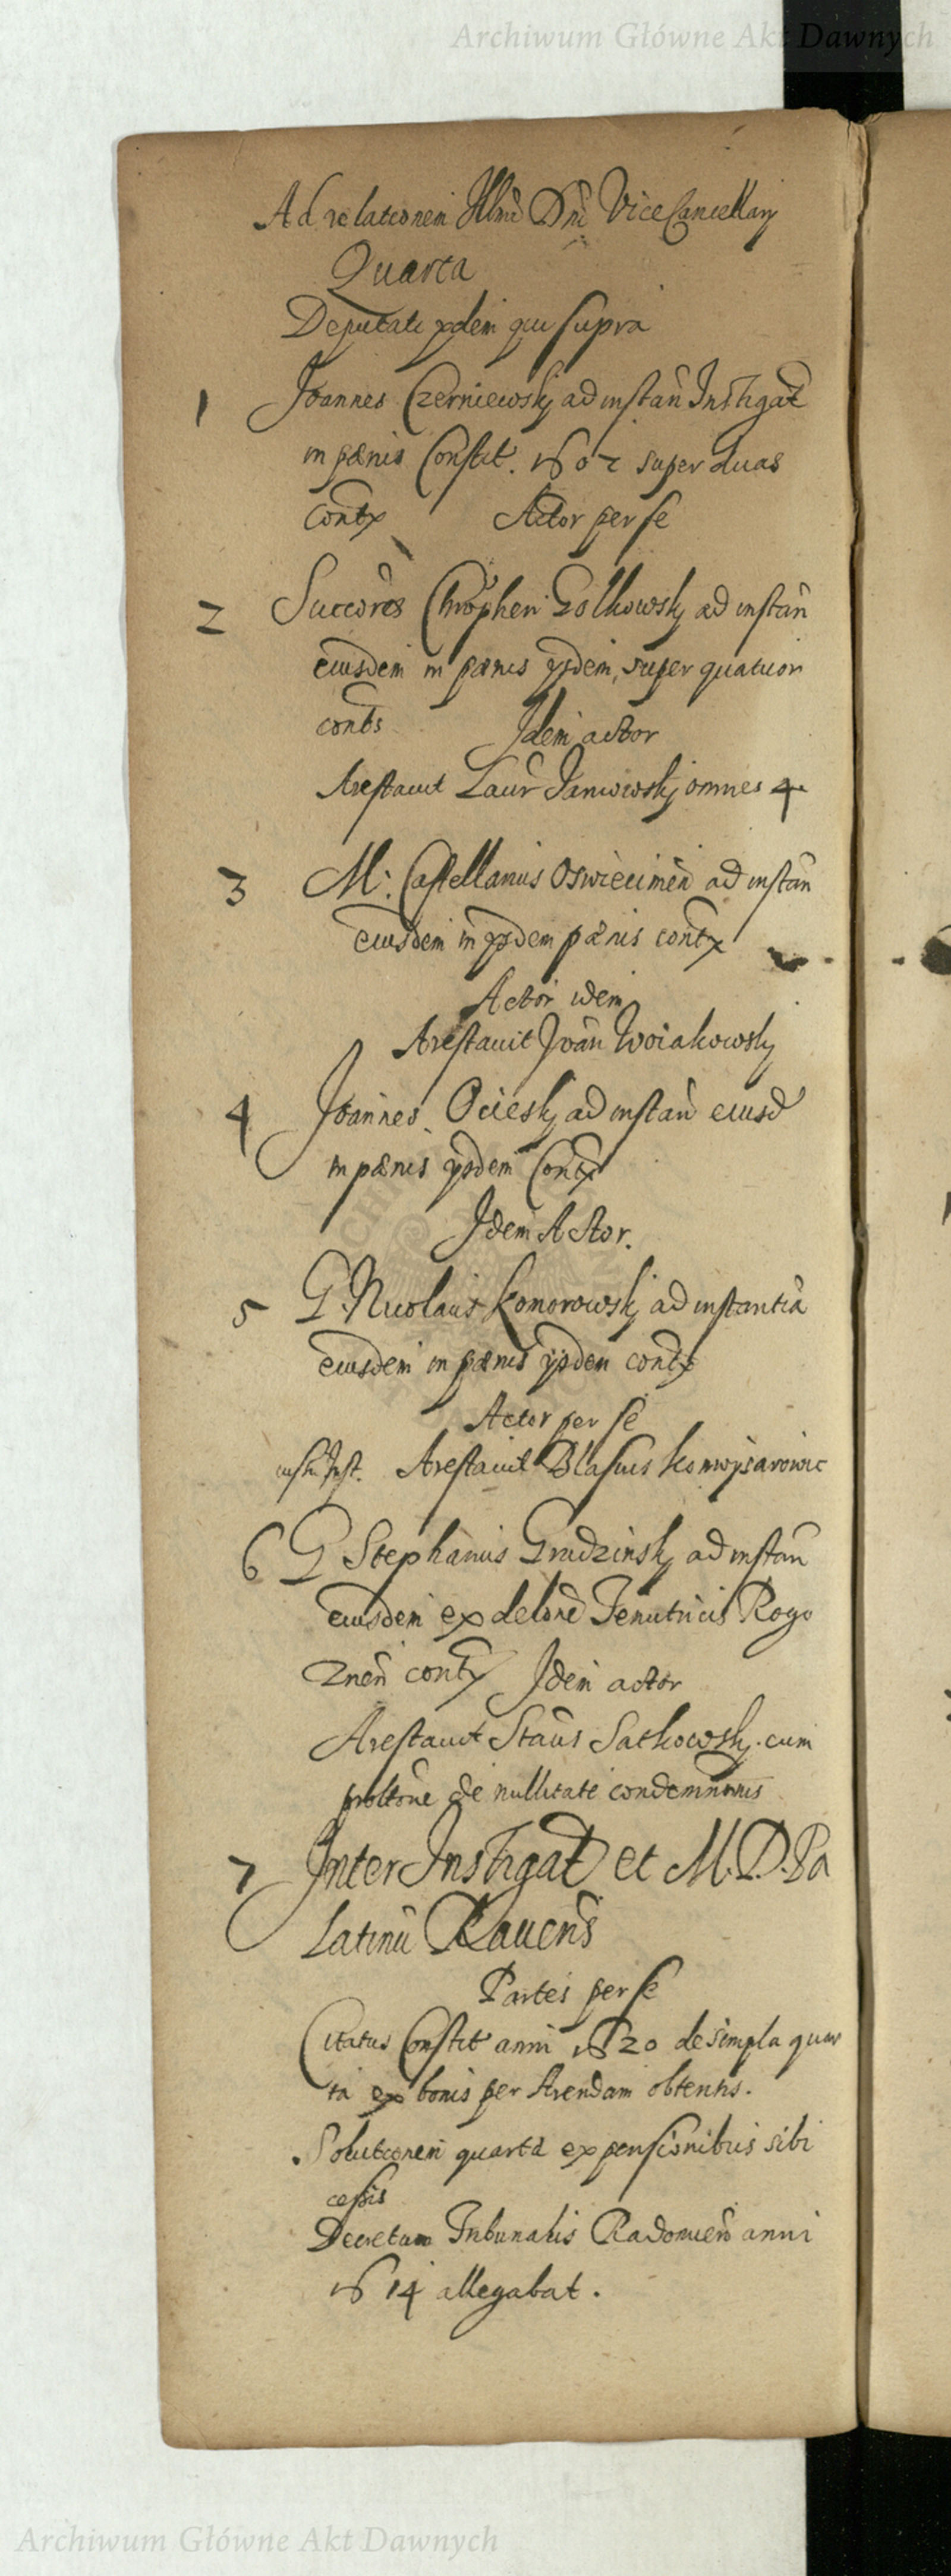 Archiwum Główne Akt Dawnych
Ad relationem Illmi Dni ViceCancellarij
Quarta
Deputati ijdem qui supra
1 Joannes Czerniewskj ad instan Instigat
in pænis Constit. 1607 super duas
contx Actor per se
2 Succores Chrophen Golkowskj ad instan
eiusdem in pænis ijsdem, super quatuor
conts Idem actor
Arestauit Laur Janiowskj omnes 4
3 M: Castellanus Oswiecimen ad instan
eiusdem in ijsdem pænis contx
Actor idem
Arestauit Joan Woiakowskj
4 Joannes Ocieskj ad instan eiusd
in pænis ijsdem Contx
Idem Actor.
5 G. Nicolaus Komorowskj ad instantia
eiusdem in pænis ijsdem contx
Actor per se
Arestauit Blasius
6 G Stephanus Grudzinskj ad instan
eiusdem ex delone Tenutricis Rogo
znen contx Idem actor
Arestauit Staus Satkowskj. cum
proltone de nullitate condemnonis
7 Inter Instigat et M. D. Pa
latinu Rauens
Partes per se
Citatus Constit anni 1620 de simpla quar
ta ex bonis per Arendam obtentis.
Solutionem quarta ex pensionibus sibi
cessis
Decretum Tribunalis Radomien anni
1614 allegabat.
Archiwum Główne Akt Dawnych